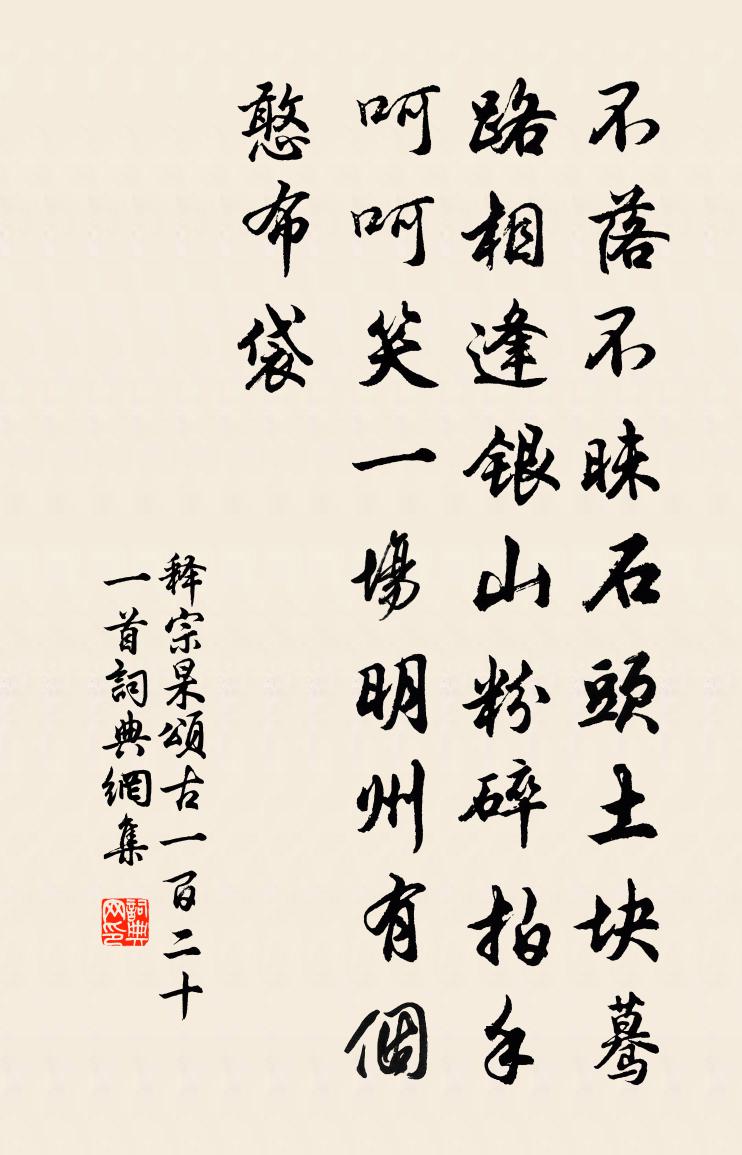 不落不昧石頭土块蓦
路相逢銀山粉碎拍手
呵呵笑一場明州有個
憨布袋
释宗杲頌古一百二十
一首詞典網集
詞典网印